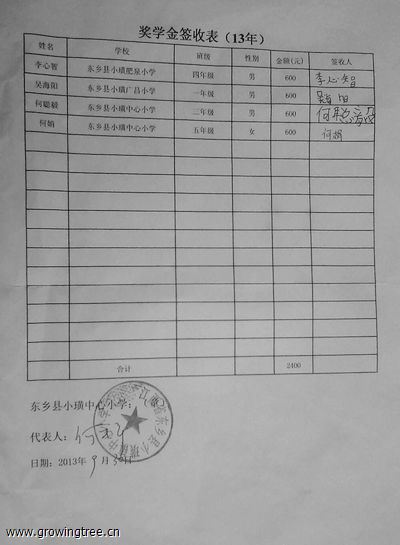 奖学金签收表（13年）
姓名 学校 班级 性别 金额(元) 签收人
李心智 东乡县小璜肥泉小学 四年级 男 600 李心智
吴海阳 东乡县小璜广昌小学 一年级 男 600
何聪毅 东乡县小璜中心小学 二年级 男 600
何娟 东乡县小璜中心小学 五年级 女 600 何娟
合计 2400
东乡县小璜中心小学：
代表人：
日期：2013年9月30日
www.growingtree.cn